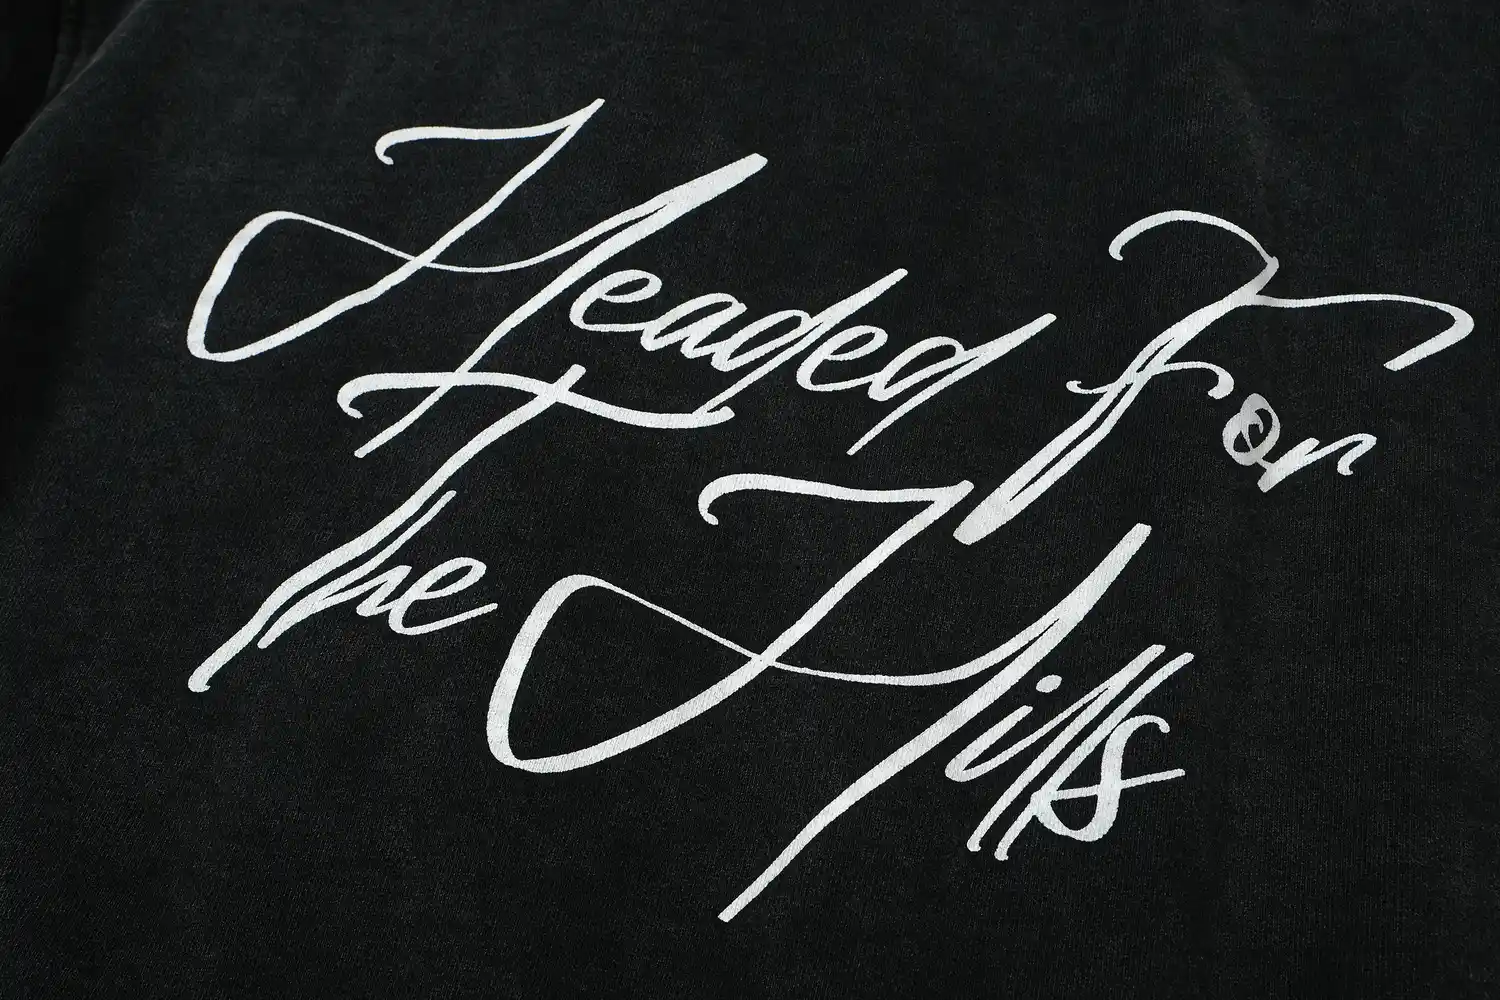 Headed For
The Hills